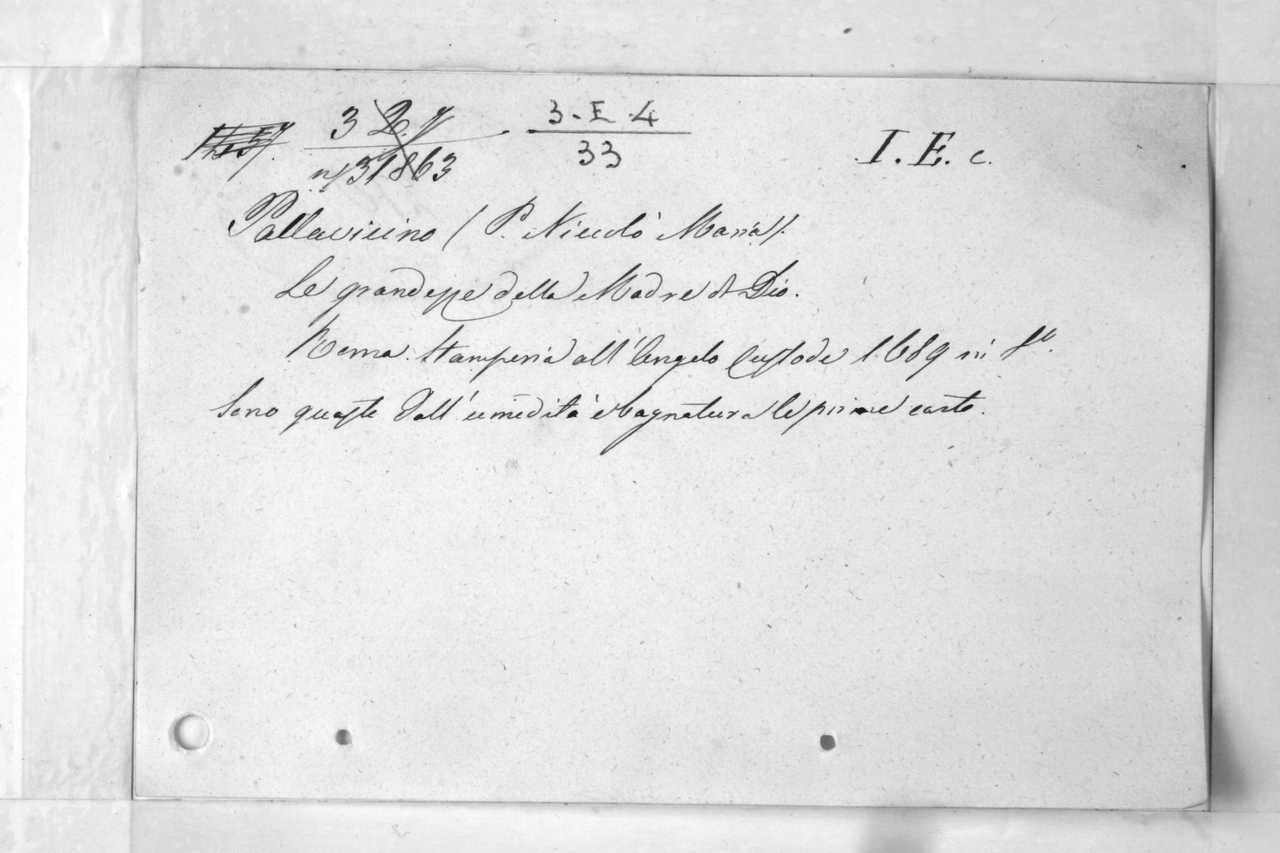 3 · E · 4
33
I. E. c.
Pallavicino (P. Niccolò Maria).
Le grandezze della Madre di Dio.
Roma. Stamperia all'Angelo Custode 1689 in 8º.
Sono guaste dall'umidità e bagnatura le prime carte.